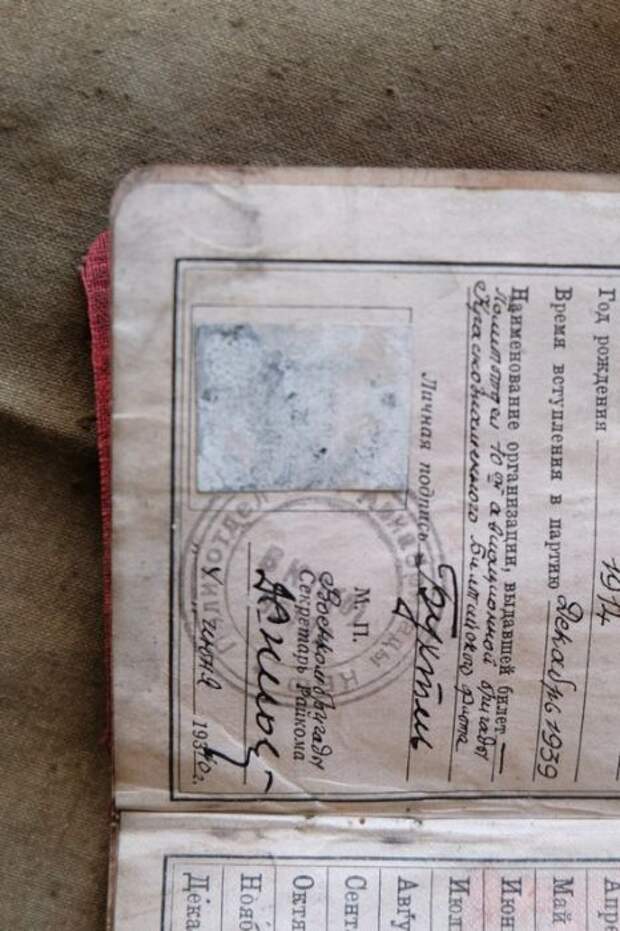 Год рождения 1914
Время вступления в партию Декабрь 1939
Наименование организации, выдавшей билет
Политотдел 10ой авиационной бригады
Краснознаменного Балтийского флота
Личная подпись
М. П.
Военком бригады
Секретарь Райкома
"4" июня 1940 г.
Политотдел
Апре
Май
Июн
Июл
Авгу
Сент
Октя
Нояб
Дека